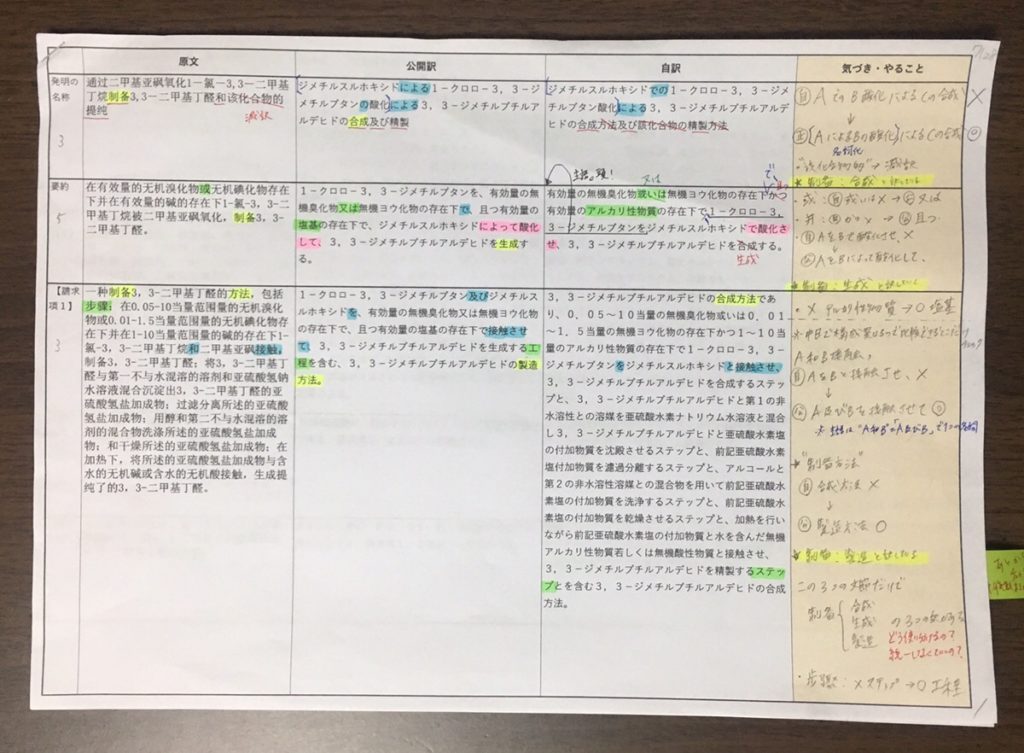 原文
公開訳
自訳
気づき・やること
発明の
名称
3
通过二甲基亚砜氧化1-氯-3,3-二甲基
丁烷制备3,3-二甲基丁醛和该化合物的
提纯
減訳
ジメチルスルホキシドによる1-クロロ-3,3-ジ
メチルブタンの酸化による3,3-ジメチルブチルアル
デヒドの合成及び精製
ジメチルスルホキシドでの1-クロロ-3,3-ジ
メチルブタン酸化による3,3-ジメチルブチルアルデ
ヒドの合成方法及び該化合物の精製方法
自 AでのB酸化によるCの合成 ×
↓
名詞化
"該化合物的"→減訳
制备:合成と訳してる
要約
5
在有效量的无机溴化物或无机碘化物存在
下并在有效量的碱的存在下1-氯-3,3-
二甲基丁烷被二甲基亚砜氧化,制备3,3-
二甲基丁醛。
1-クロロ-3,3-ジメチルブタンを、有効量の無
機臭化物又は無機ヨウ化物の存在下で、且つ有効量の
塩基の存在下で、ジメチルスルホキシドによって酸化
して、3,3-ジメチルブチルアルデヒドを生成す
る。
又は
有効量の無機臭化物或いは無機ヨウ化物の存在下かつ
有効量のアルカリ性物質の存在下で1-クロロ-3,
3-ジメチルブタンをジメチルスルホキシドで酸化さ
せ、3,3-ジメチルブチルアルデヒドを合成する。
生成
・或:自或いは×→公又は
・并:自かつ×→公且つ
・自AをBで酸化させ、×
公AをBによって酸化して、
制备:生成と訳してる
【請求
項1】
3
一种制备3,3-二甲基丁醛的方法,包括
步骤:在0.05-10当量范围量的无机溴化
物或0.01-1.5当量范围量的无机碘化物存在
下并在1-10当量范围量的碱的存在下1-
氯-3,3-二甲基丁烷和二甲基亚砜接触,
制备3,3-二甲基丁醛;将3,3-二甲基丁
醛与第一不与水混溶的溶剂和亚硫酸氢钠
水溶液混合沉淀出3,3-二甲基丁醛的亚
硫酸氢盐加成物;过滤分离所述的亚硫酸
氢盐加成物;用醇和第二不与水混溶的溶
剂的混合物洗涤所述的亚硫酸氢盐加成
物;和干燥所述的亚硫酸氢盐加成物;在
加热下,将所述的亚硫酸氢盐加成物与含
水的无机碱或含水的无机酸接触,生成提
纯了的3,3-二甲基丁醛。
1-クロロ-3,3-ジメチルブタン及びジメチルス
ルホキシドを、有効量の無機臭化物又は無機ヨウ化物
の存在下で、且つ有効量の塩基の存在下で接触させ
て、3,3-ジメチルブチルアルデヒドを生成する工
程を含む、3,3-ジメチルブチルアルデヒドの製造
方法。
3,3-ジメチルブチルアルデヒドの合成方法であ
り、0.05~10当量の無機臭化物或いは0.01
~1.5当量の無機ヨウ化物の存在下かつ1~10当
量のアルカリ性物質の存在下で1-クロロ-3,3-
ジメチルブタンをジメチルスルホキシドと接触させ、
3,3-ジメチルブチルアルデヒドを合成するステッ
プと、3,3-ジメチルブチルアルデヒドと第1の非
水溶性との溶媒を亜硫酸水素ナトリウム水溶液と混合
し3,3-ジメチルブチルアルデヒドと亜硫酸水素塩
の付加物質を沈殿させるステップと、前記亜硫酸水素
塩付加物質を濾過分離するステップと、アルコールと
第2の非水溶性溶媒との混合物を用いて前記亜硫酸水
素塩の付加物質を洗浄するステップと、前記亜硫酸水
素塩の付加物質を乾燥させるステップと、加熱を行い
ながら前記亜硫酸水素塩の付加物質と水を含んだ無機
アルカリ性物質若しくは無機酸性物質と接触させ、
3,3-ジメチルブチルアルデヒドを精製するステッ
プとを含む3,3-ジメチルブチルアルデヒドの合成
方法。
・× アルカリ性物質→○塩基
AとBを接触、
自 AをBと接触させ、×
↓
公 A及びBを接触させて ○
"制备方法"
自 合成方法 ×
↓
公 製造方法 ○
制备:製造と訳してる
この3つの文節だけで
制备 合成
生成 の3つの訳がある
製造 どう使い分けるの?
統一しなくていいの?
・步骤:×ステップ→○工程